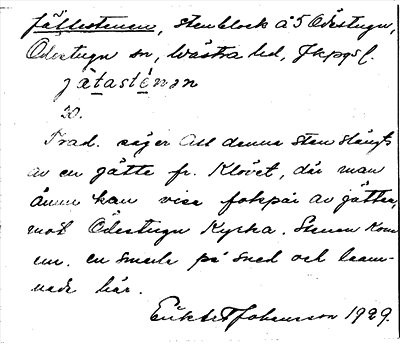 Jättestenen, stenblock å 5 Ödestugu,
Ödestugu sn, Västra hd, Jkpgs l.
jätasténən
30.
Trad. säger att denna sten slängts
av en jätte fr. Klövet, där man
ännu kan visa fotspår av jätten,
mot Ödestugu Kyrka. Stenen kom
em. en smula på sned och lamn-
nade här.
Johansson 1929.